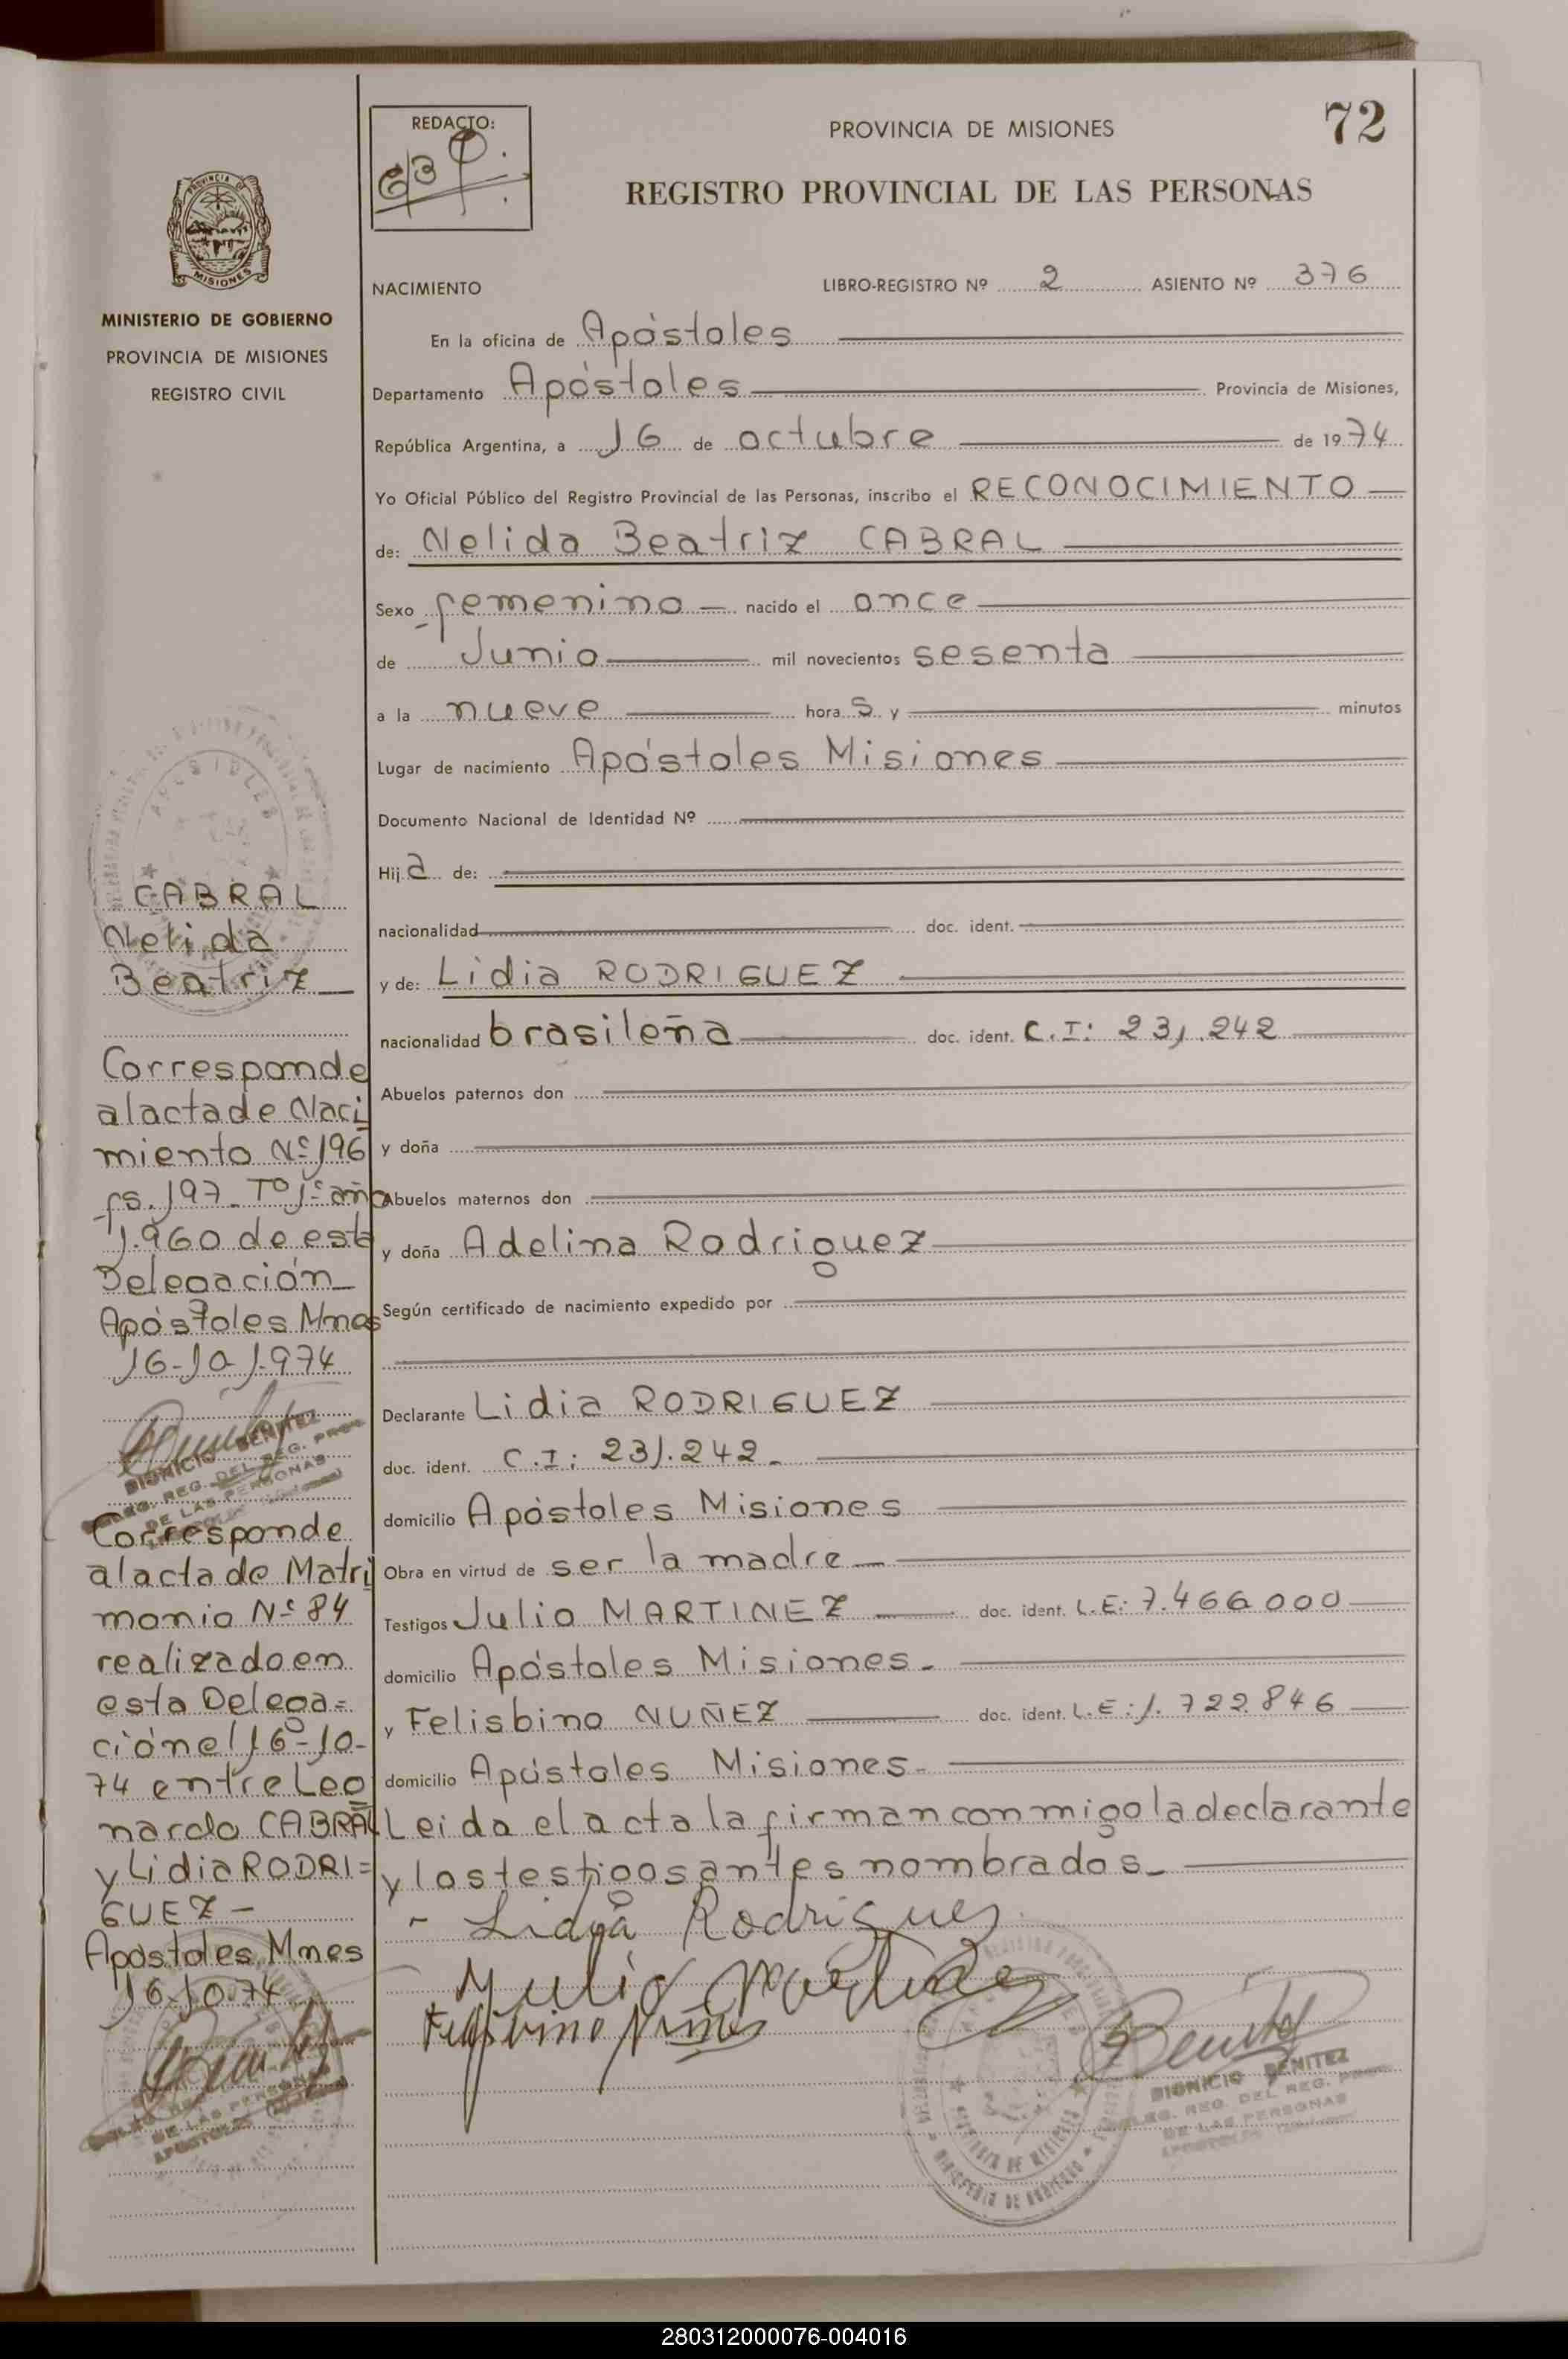 REDACTO:
PROVINCIA DE MISIONES
72
REGISTRO PROVINCIAL DE LAS PERSONAS
PROVINCIA DE
MISIONES
MINISTERIO DE GOBIERNO
PROVINCIA DE MISIONES
REGISTRO CIVIL
NACIMIENTO LIBRO-REGISTRO Nº 2 ASIENTO Nº 376
En la oficina de Apóstoles
Departamento Apóstoles Provincia de Misiones,
República Argentina, a 16 de octubre de 1974
Yo Oficial Público del Registro Provincial de las Personas, inscribo el RECONOCIMIENTO
de: Nelida Beatriz CABRAL
Sexo femenino nacido el once
de Junio mil novecientos sesenta
a la nueve horas y minutos
Lugar de nacimiento Apóstoles Misiones
Documento Nacional de Identidad Nº
Hija de:
nacionalidad doc. ident.
y de: Lidia RODRIGUEZ
nacionalidad brasileña doc. ident. C.I: 231.242
Abuelos paternos don
y doña
Abuelos maternos don
y doña Adelina Rodriguez
Según certificado de nacimiento expedido por
Declarante Lidia RODRIGUEZ
doc. ident. C.I: 231.242.
domicilio Apóstoles Misiones
Obra en virtud de ser la madre
Testigos Julio MARTINEZ doc. ident. L.E: 7.466000
domicilio Apóstoles Misiones.
y Felisbino NUÑEZ doc. ident. L.E: 1.722.846
domicilio Apóstoles Misiones.
Leida el acta la firman conmigo la declarante
y los testigos antes nombrados.
Lidia Rodriguez
Julio Martinez
Felisbino Nuñes
Benitez
DIONICIO BENITEZ
DELEG. REG. DEL REG. PROV.
DE LAS PERSONAS
APOSTOLES
APOSTOLES
CABRAL
Nelida
Beatriz
Corresponde
al acta de Naci
miento Nº 196
fs. 197. Tº 1º año
1.960 de esta
Delegación
Apóstoles Mnes
16-10-1.974
DIONICIO BENITEZ
DELEG. REG. DEL REG. PROV.
DE LAS PERSONAS
Corresponde
al acta de Matri
monio Nº 84
realizado en
esta Delega=
ción el 16-10-
74 entre Leo
nardo CABRAL
y Lidia RODRI=
GUEZ -
Apóstoles, Mnes
16.10.74
DE LAS PERSONAS
APOSTOLES
280312000076-004016